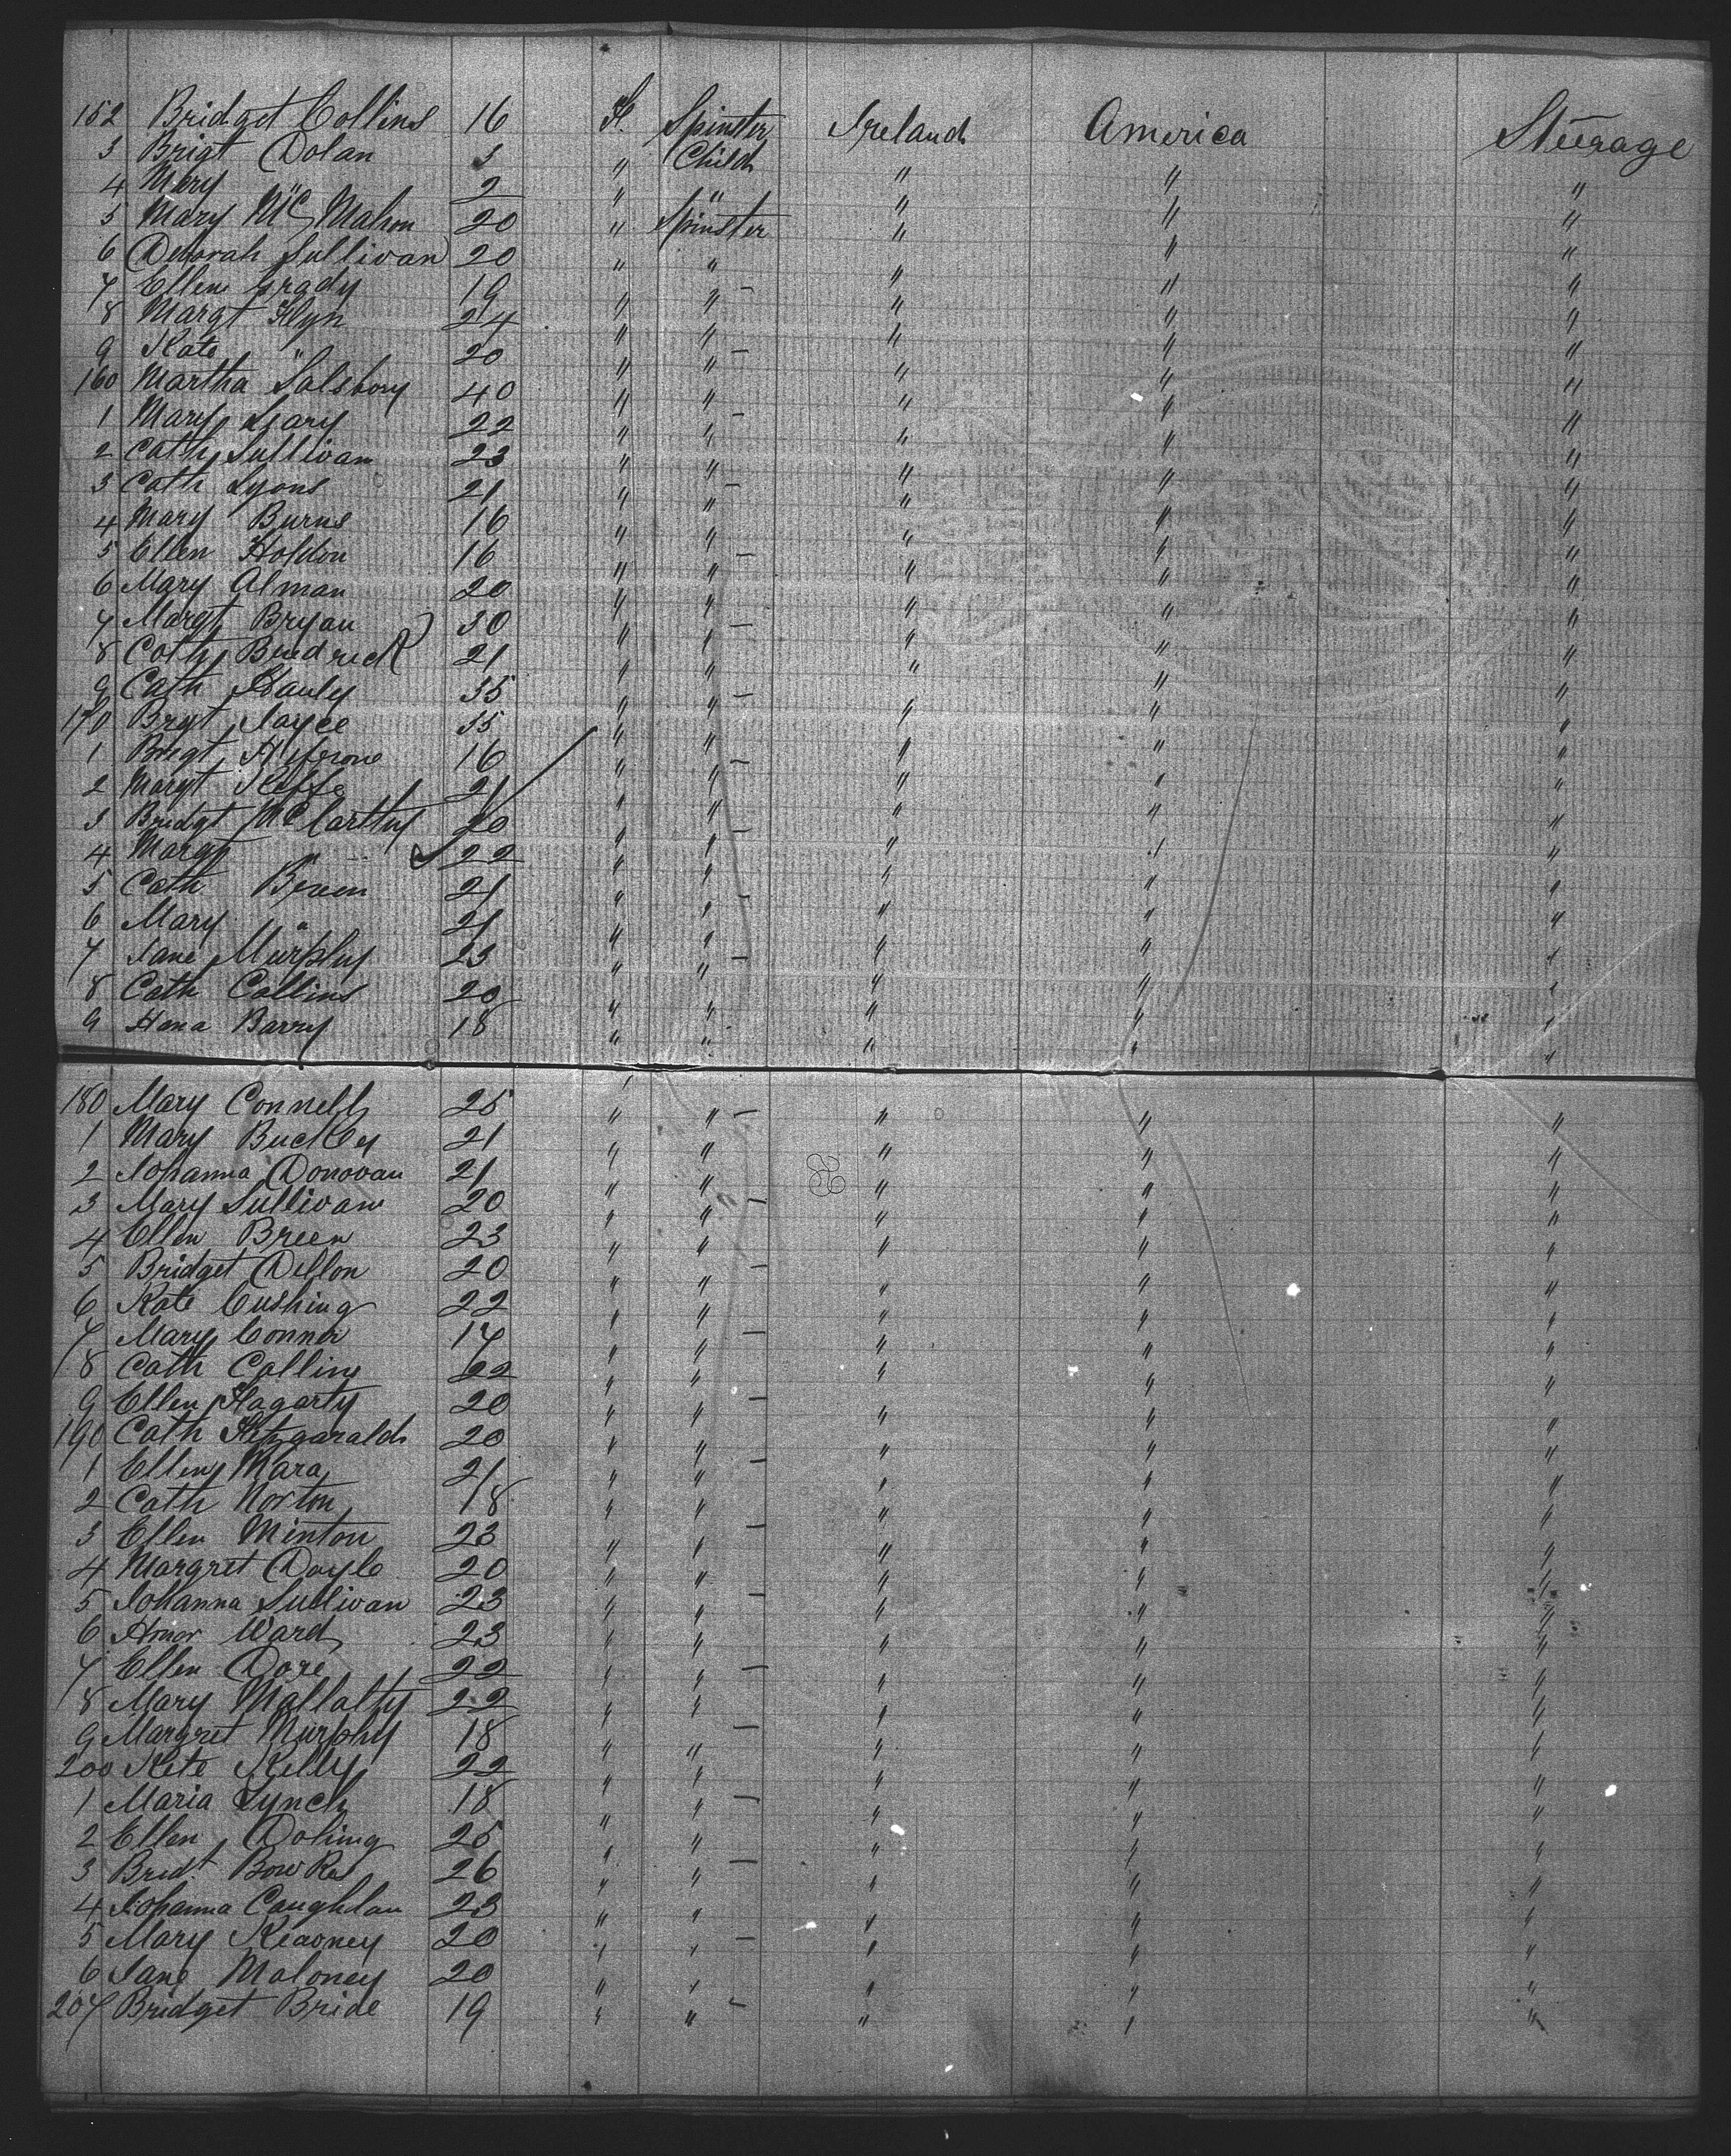 152 Bridget Collins 16 F. Spinster Ireland America Steerage
3 Brigt Dolan 3 " Child " " "
4 Mary " 2 " " " " "
5 Mary McMahon 20 " Spinster " " "
6 Deborah Sullivan 20 " " " " "
7 Ellen Grady 19 " " " " "
8 Margt Flyn 24 " " " " "
9 Kate " 20 " " " " "
160 Martha Salsbory 40 " " " " "
1 Mary Leary 22 " " " " "
2 Cath Sullivan 23 " " " " "
3 Cath Lyons 21 " " " " "
4 Mary Burns 16 " " " " "
5 Ellen Holdon 16 " " " " "
6 Mary Alman 20 " " " " "
7 Margt Bryan 30 " " " " "
8 Cath 21 " " " " "
9 Cath 35 " " " " "
170 Brgt Jayce 35 " " " " "
1 Brigt 16 " " " " "
2 Margt Keffe 21 " " " " "
3 Bridgt McCarthy 20 " " " " "
4 Margt " 22 " " " " "
5 Cath Breen 21 " " " " "
6 Mary " 21 " " " " "
7 Jane Murphy 23 " " " " "
8 Cath Collins 20 " " " " "
9 Hana Barry 18 " " " " "
180 Mary Connell 25 " " " " "
1 Mary Buckley 21 " " " " "
2 Johanna Donovan 21 " " " " "
3 Mary Sullivan 20 " " " " "
4 Ellen Breen 23 " " " " "
5 Bridget Dillon 20 " " " " "
6 Kate Cushing 22 " " " " "
7 Mary Connor 17 " " " " "
8 Cath Collins 22 " " " " "
9 Ellen Hagarty 20 " " " " "
190 Cath Fitzgarald 20 " " " " "
1 Ellen Mara 21 " " " " "
2 Cath Norton 18 " " " " "
3 Ellen Minton 23 " " " " "
4 Margret Doyle 20 " " " " "
5 Johanna Sullivan 23 " " " " "
6 Honor Ward 23 " " " " "
7 Ellen Dore 22 " " " " "
8 Mary Mallalty 22 " " " " "
9 Margret Murphy 18 " " " " "
200 Kate Kelly 22 " " " " "
1 Maria Lynch 18 " " " " "
2 Ellen Doling 25 " " " " "
3 Bridt. 26 " " " " "
4 Johanna Caughlan 23 " " " " "
5 Mary Kearney 20 " " " " "
6 Jane Maloney 20 " " " " "
207 Bridget Bride 19 " " " " "